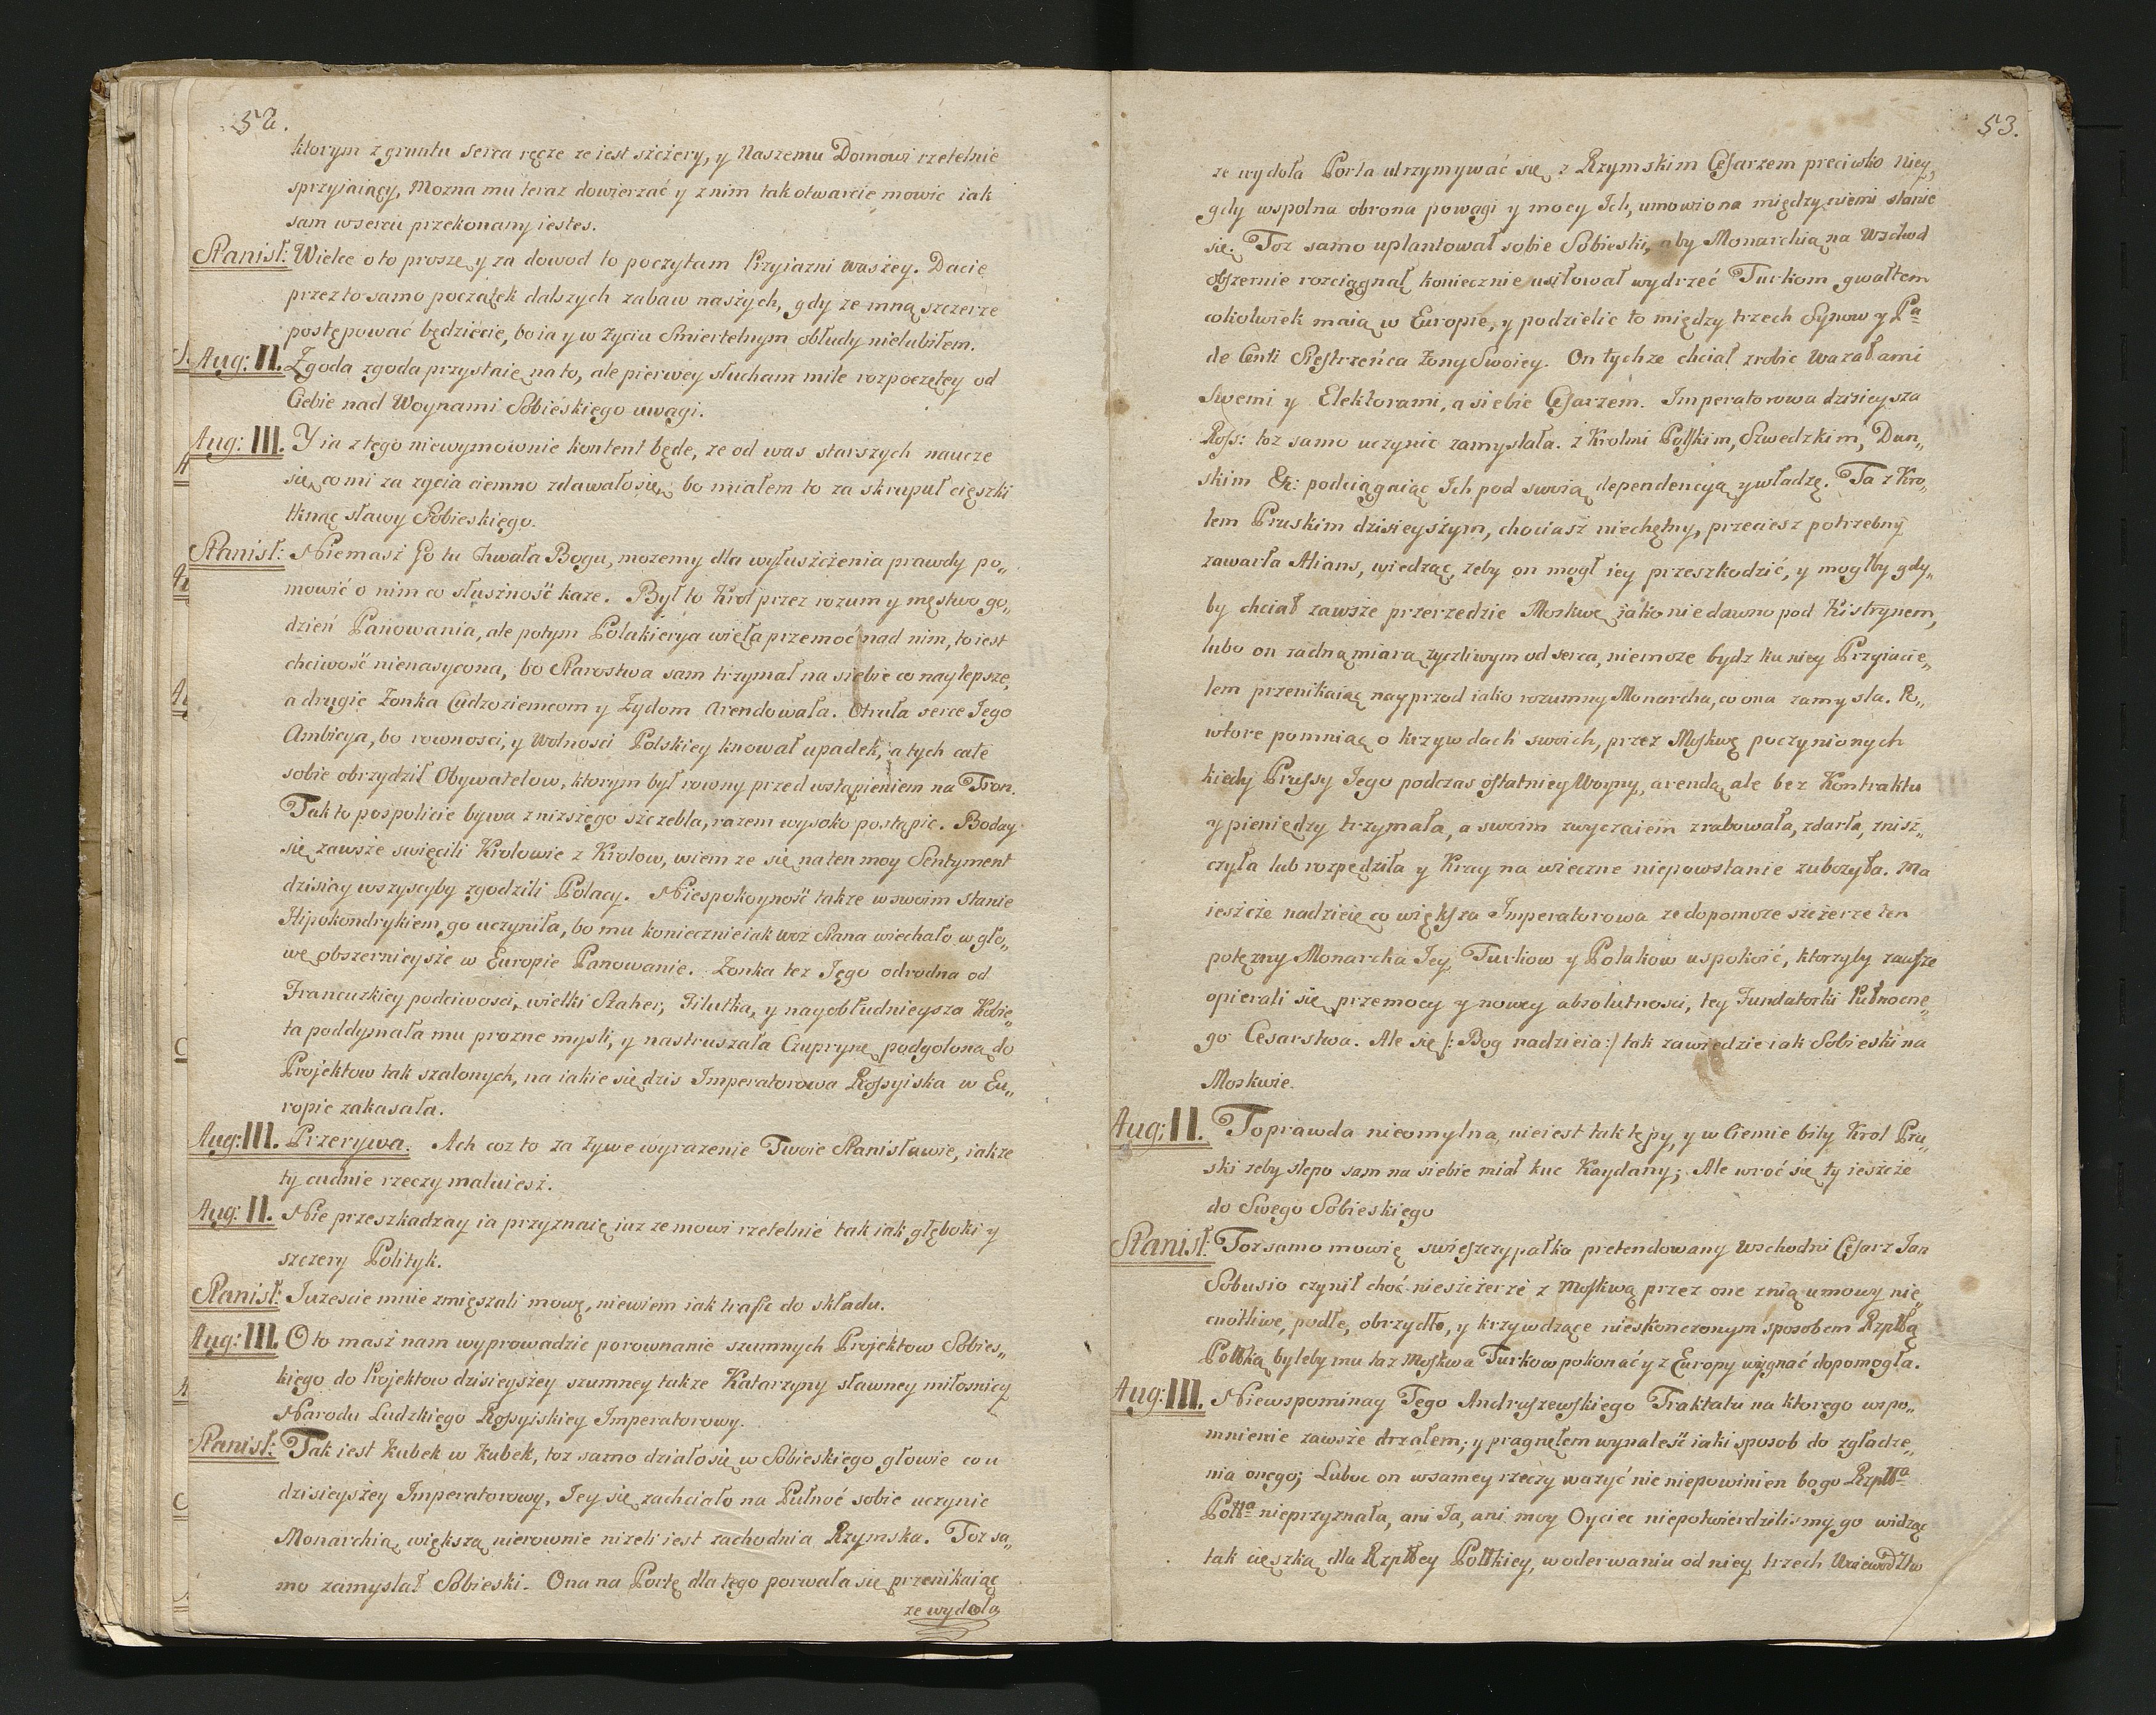 52.
ktorym z gruntu serca ręczę ze iest szczery, y Naszemu Domowi rzetelnie
sprzyiaiący, Mozna mu teraz dowierzać y z nim tak otwarcie mowic iak
sam w sercu przekonany iestes.
Stanisł: Wielce o to proszę y za dowod to poczytam Przyiazni waszey. Dacie
przez to samo początek dalszych zabaw naszych, gdy ze mną szczerze
postępować będziecie, bo ia y w Zyciu Smiertelnym obłudy nielubiłem.
Aug: II. Zgoda zgoda przystaię na to, ale pierwey słucham mile rozpoczętey od
Ciebie nad Woynami Sobieskiego uwagi.
Aug: III. Y ia z tego niewymownie kontent będe, ze od was starszych naucze
się, co mi za zycia ciemno zdawało się, bo miałem to za skrupuł cięszki
tknąc sławy Sobieskiego.
Stanisł: Niemasz Go tu Chwała Bogu, mozemy dla wyłuszczenia prawdy po„
mowić o nim co słuszność kaze. Był to Krol przez rozum y męstwo go„
dzień Panowania, ale potym Polakierya wzięła przemoc nad nim, to iest
chciwość nienasycona, bo Starostwa sam trzymał na siebie co naylepsze,
a drugie Zonka Cudzoziemcom y Zydom Arendowała. Otruła serce Jego
Ambicya, bo rownosci, y Wolnosci Polskiey knował upadek, a tych całe
sobie obrzydził Obywatelow, ktorym był rowny przed wstąpieniem na Tron.
Tak to pospolicie bywa z nizszego szczebla, razem wysoko postąpic. Boday
się zawsze swięcili Krolowie z Krolow, wiem ze się na ten moy Sentyment
dzisiay wszyscyby zgodzili Polacy. Niespokoyność takze w swoim stanie
Hipokondrykiem go uczyniła, bo mu koniecznie iak woz Siana wiechało w gło„
wę obszernieysze w Europie Panowanie. Zonka tez Jego odrodna od
Francuzkiey podciwosci, wielki Szaher, Filutka, y nayobłudnieysza Kobie„
ta poddymała mu prozne mysli, y nastruszała Czuprynę podgoloną do
Projektow tak szalonych, na iakie się dzis Imperatorowa Rossyiska w Eu„
ropie zakasała.
Aug: III. Przerywa. Ach coz to za zywe wyrazenie Twoie Stanisławie, iakze
ty cudnie rzeczy maluiesz.
Aug: II. Nie przeszkadzay ia przyznaię iuz ze mowi rzetelnie tak iak głęboki y
szczery Polityk.
Stanisł: Juzescie mnie zmięszali mowę, niewiem iak trafic do składu.
Aug: III. O to masz nam wyprowadzic porownanie szumnych Projektow Sobies„
kiego do Projektow dzisieyszey szumney takze Katarzyny sławney miłosnicy
Narodu Ludzkiego Rossyiskiey Imperatorowy.
Stanisł: Tak iest Kubek w Kubek, toz samo działo się w Sobieskiego głowie co u
dzisieyszey Imperatorowy, Jey się zachciało na Pułnoć sobie uczynic
Monarchią większą nierownie nizeli iest zachodnia Rzymska. Toz sa„
mo zamyslał Sobieski. Ona na Portę dla tego porwała się przenikaiąc
ze wydoła
53.
ze wydoła Porta utrzymywać się z Rzymskim Cesarzem preciwko Niey,
gdy wspolna obrona powagi y mocy Ich, umowiona między niemi stanie
się. Toz samo uplantował sobie Sobieski, aby Monarchią na Wschod
obszernie rozciągnął koniecznie usiłował wydrzeć Turkom gwałtem
cokolwiek maią w Europie, y podzielic to między trzech Synow y Pa
de Centi Siestrzeńca Zony Swoiey. On tychze chciał zrobic Wazalami
Swemi y Elektorami, a siebie Cesarzem. Imperatorowa dzisieysza
Ross: toz samo uczynic zamyslała. z Krolmi Polskim, Szwedzkim, Dun„
skim Etc: podciągaiąc Ich pod swoią dependencyą y władzę. Ta z Kro„
lem Pruskim dzisieyszym, chociasz niechętny, przeciesz potrzebny
zawarła Alians, wiedząc, zeby on mogł iey przeszkodzić, y mogłby gdy„
by chciał zawsze przerzedzic Moskwę iako niedawno pod Kistrynem,
lubo on zadną miarą zyczliwym od serca, niemoze bydz ku niey Przyiacie„
lem przenikaiąc nayprzod iako rozumny Monarcha, co ona zamysla. Po„
wtore pomniąc o krzywdach swoich, przez Moskwę poczynionych
kiedy Prussy Jego podczas ostatniey Woyny, arendą ale bez Kontraktu
y pieniędzy trzymała, a swoim zwyczaiem zrabowała, zdarła, znisz„
czyła lub rozpędziła y Kray na wieczne niepowstanie zubozyła. Ma
ieszcze nadzieię co większa Imperatorowa ze dopomoze szczerze ten
potęzny Monarcha Jey Turkow y Polakow uspokoić, ktorzyby zawsze
opierali się przemocy y nowey absolutnosci, tey Fundatorki Pułnocne„
go Cesarstwa. Ale się /: Bog nadzieia :/ tak zawiedzie iak Sobieski na
Moskwie.
Aug: II. To prawda nieomylna nieiest tak tępy, y w Ciemie bity Krol Pru„
ski zeby slepo sam na siebie miał kuc Kaydany; Ale wroć się ty ieszcze
do Swego Sobieskiego
Stanisł: Toz samo mowię swieszczypałka pretendowany Wschodni Cesarz Jan
Sobusio czynił choć nieszczerze z Moskwą przez one z nią umowy nie„
cnotliwe, podłe, obrzydłe, y krzywdzące nieskonczonym sposobem Rzpltą
Polską byleby mu taz Moskwa Turkow pokonać y z Europy wygnać dopomogła.
Aug: III. Niewspominay Tego Andruszewskiego Traktatu na ktorego wspo„
mnienie zawsze drzałem; y pragnąłem wynaleść iaki sposob do zgładze„
nia onego; Luboc on w samey rzeczy wazyć nic niepowinien bo go Rzplta
Polka nieprzyznała, ani Ja, ani moy Oyciec niepotwierdzilismy go widząc
tak cięszką dla Rzpltey Polkiey, w oderwaniu od niey trzech Woiewodztw